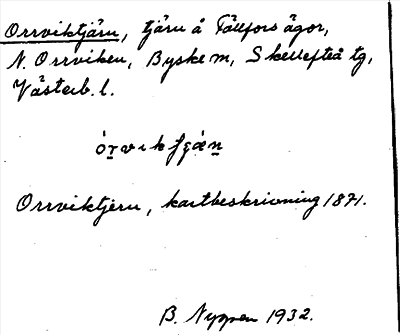 Orrviktjärn, tjärn å Fällfors ägor,
N. Orrviken, Byske m, Skellefteå tg,
Västerb. l.
Orrviktjern, kartbeskrivning 1871.
B. Nyman 1932.